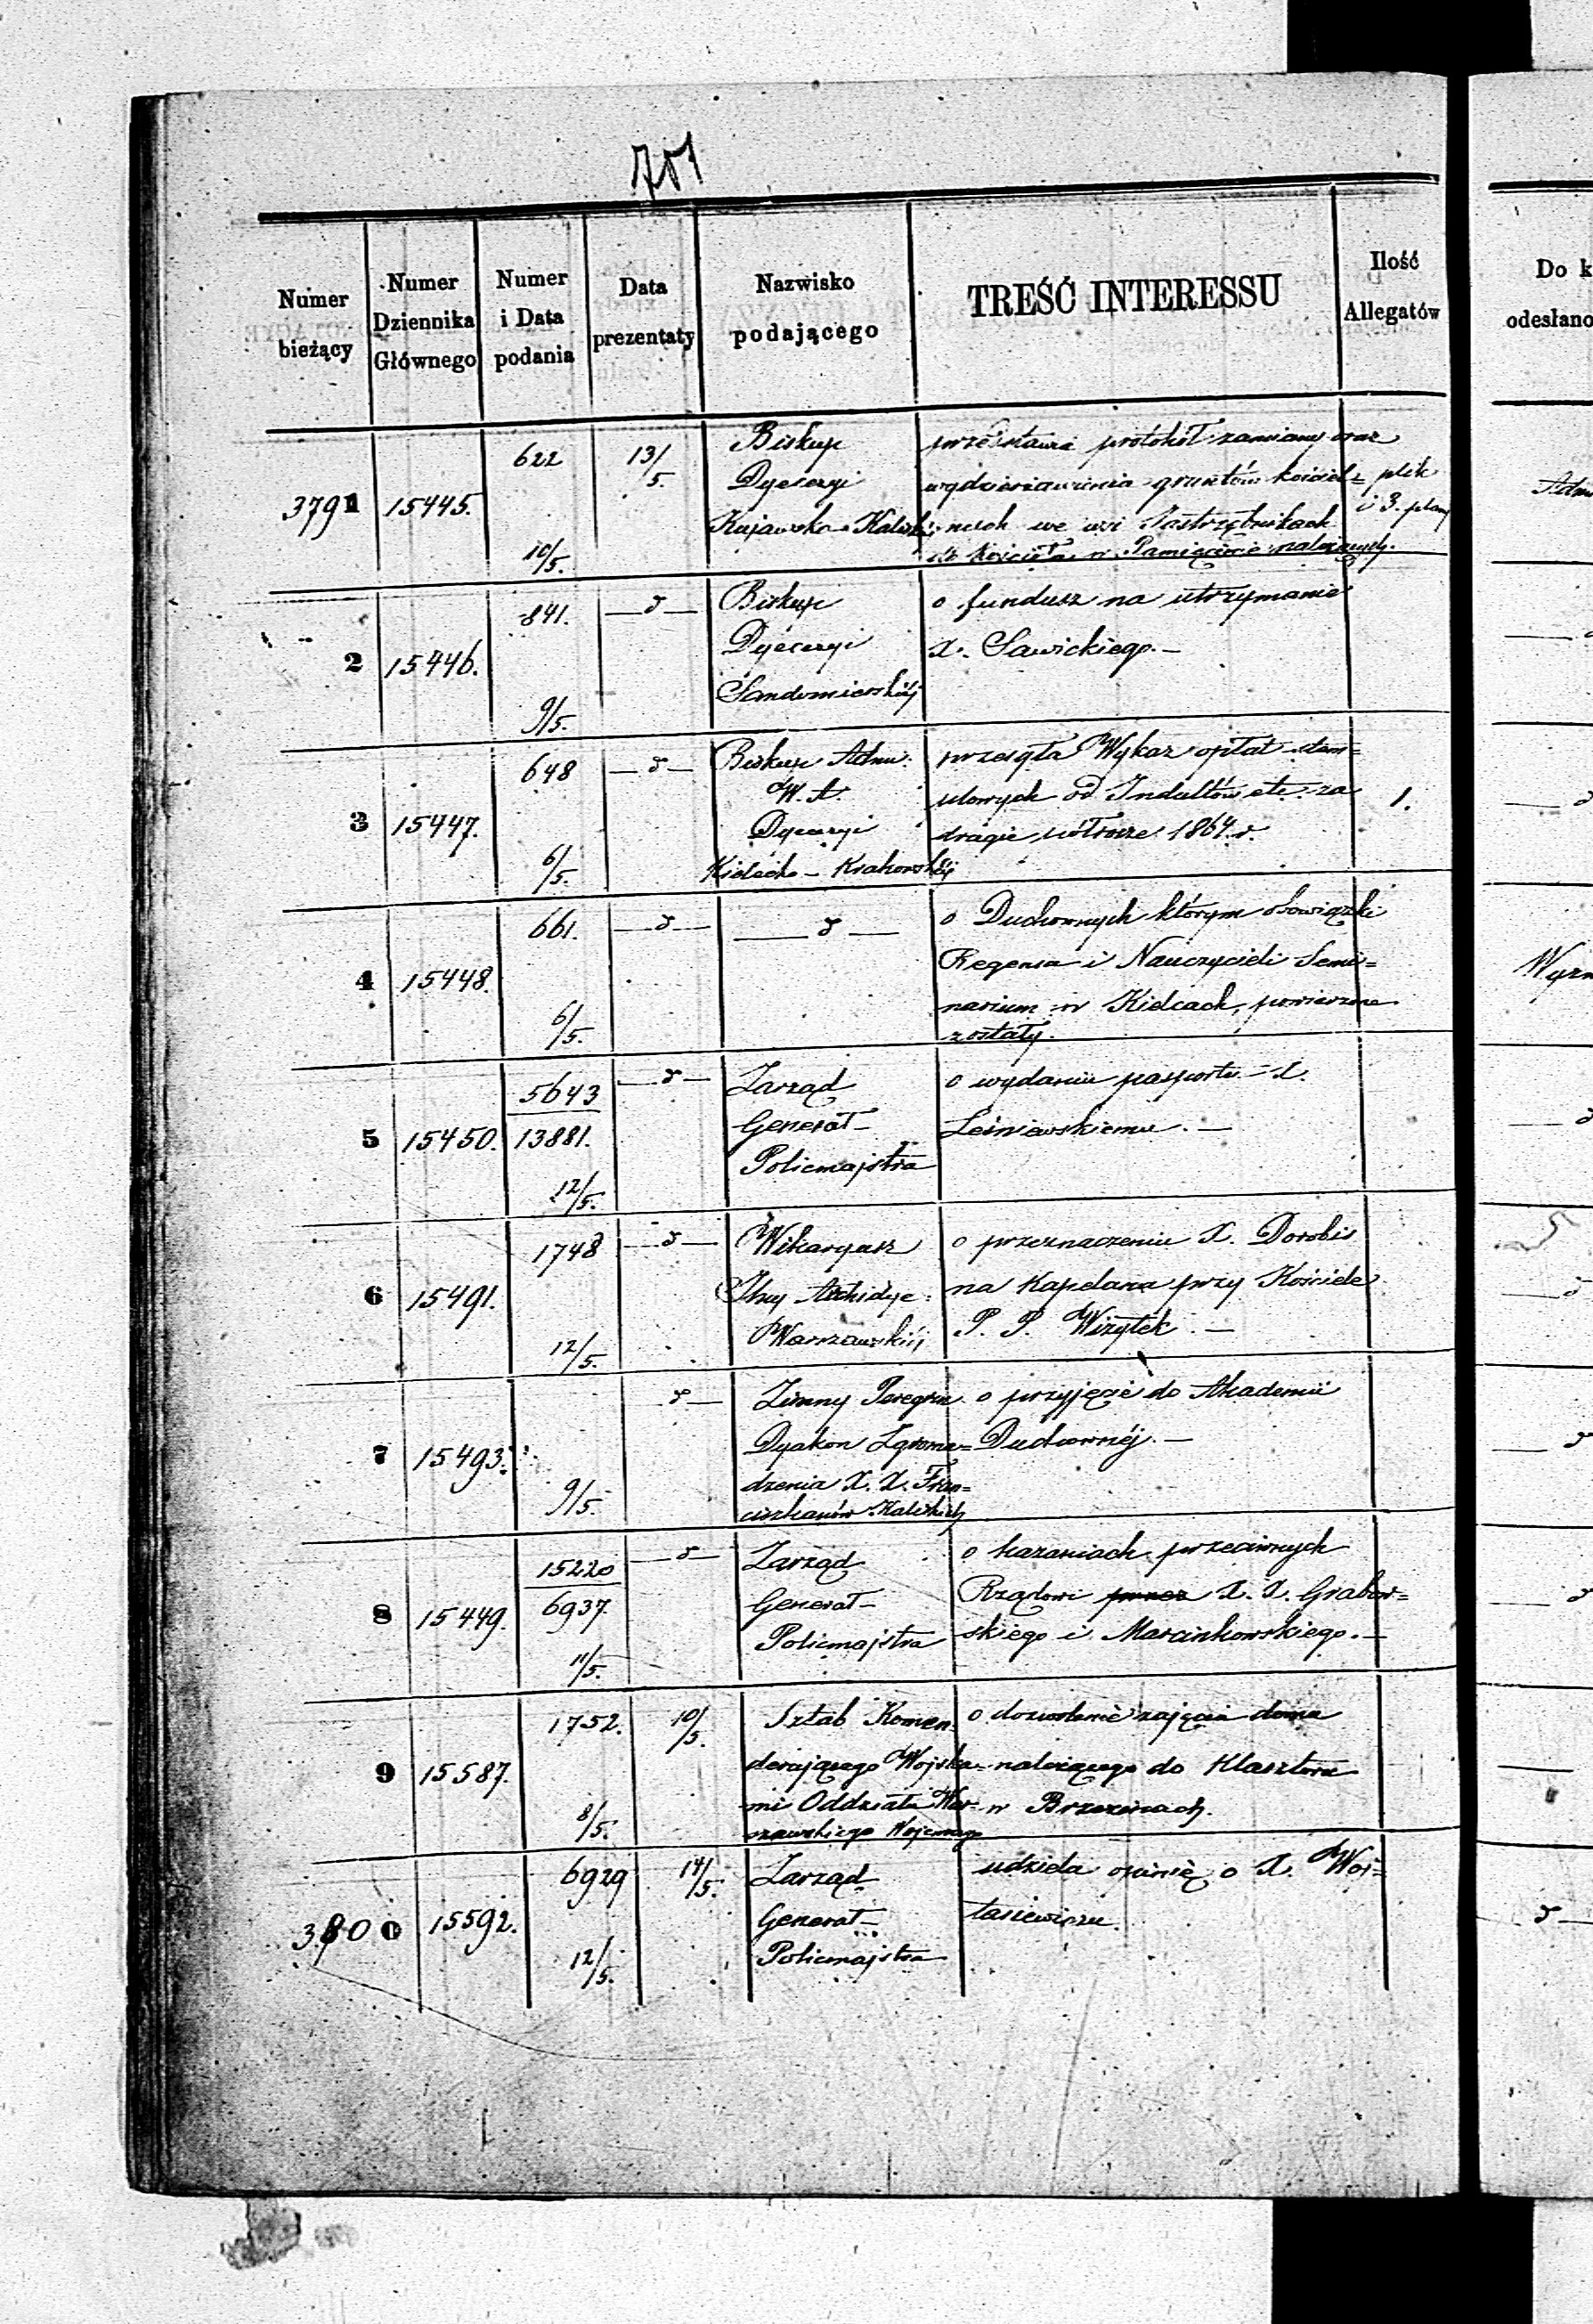 701
Numer bieżący
Numer Dziennika Głównego
Numer i Data podania
Data prezentaty
Nazwisko podającego
TREŚĆ INTERESSU
Ilość Allegatów
Do k
odesłano
3791 15445. 622 10/5. 13/5.
Biskup
Dyecezyi
Kujawsko-Kaliskiéj
przedstawia protokół zamiany oraz
wydzierżawienia gruntów kościel=
nych we wsi Jastrzębnikach
do kościoła w Pamięcinie należących.
plik
i 3. plany
Adm
2 15446. 841. 9/5. — d —
Biskup
Dyecezyi
Sandomierskiéj
o fundusz na utrzymanie
X. Sawickiego. —
3 15447. 648 6/5. — d —
Biskup Adm:
W. A.
Dyecezyi
Kielecko - Krakowskiéj
przesyła Wykaz opłat stem=
plowych od Indultów etc. za
drugie półrocze 1864. r.
1.
— d
4 15448. 661. 6/5. — d —
— d —
o Duchownych którym obowiązki
Regensa i Nauczycieli Semi=
narium w Kielcach, powierzone
zostały.
Wyzn
5 15450. 5643 13881. 12/5. — d —
Zarząd
Generał-
Policmajstra
o wydaniu pasportu X.
Leśniewskiemu. —
— d
6 15491. 1748 12/5. — d —
Wikaryusz
Jlny Archidye:
Warszawskiéj
o przeznaczeniu X. Dorobis
na Kapelana przy Kościele
P. P. Wizytek. —
— d
7 15493. 9/5. d —
Zimny Peregrin
Dyakon Zgroma=
dzenia X. X. Fran=
ciszkanów Kaliskich
o przyjęcie do Akademii
Duchownéj. —
— d
8 15449. 15220 6937. 11/5. — d —
Zarząd
Generał-
Policmajstra
o kazaniach przeciwnych
Rządowi przez X. X. Grabow=
skiego i Marcinkowskiego. —
— d
9 15587. 1752. 8/5. 10/5.
Sztab Komen=
derującego Wojska=
mi Oddziału War=
szawskiego Wojennego
o dozwolenie zajęcia domu
należącego do Klasztoru
w Brzezinach.
3800 15592. 6929 12/5. 14/5.
Zarząd
Generał-
Policmajstra
udziela opinię o X. Woj=
tasiewiczu.
d —